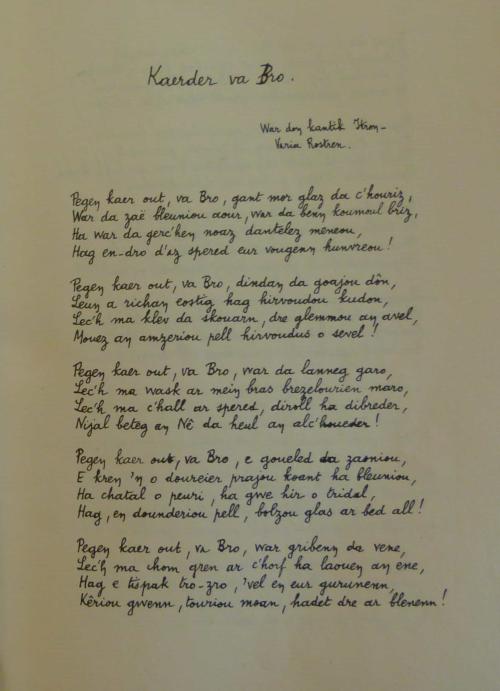 Kaerder va Bro.
War don kantik Itron-
Varia Rostren.
Pegen kaer out, va Bro, gant mor glaz da c'houriz,
War da zaë bleuniou aour, war da benn koumoul briz,
Ha war da gerc'hen noaz dantelez meneou,
Hag en-dro d'az spered eur vougenn hunvreou!
Pegen kaer out, va Bro, dindan da goajou dôn,
Leun a richan eostig hag hirvoudou kudon,
Lec'h ma klev da skouarn, dre glemmou an avel,
Mouez an amzeriou pell hirvoudus o sevel!
Pegen kaer out, va Bro, war da lanneg garo,
Lec'h ma wask ar mein bras brezelourien maro,
Lec'h ma c'hall ar spered, diroll ha dibreder,
Nijal beteg an Nê da heul an alc'houeder!
Pegen kaer out, va Bro, e goueled da zaoniou,
E kren 'n o doureier prajou koant ha bleuniou,
Ha chatal o peuri, ha gwe hir o tridal,
Hag, en dounderiou pell, bolzou glas ar bed all!
Pegen kaer out, va Bro, war gribenn da vene,
Lec'h ma chom gren ar c'horf ha laouen an ene,
Hag e tispak tro-zro, 'vel en eur gurunenn,
Kêriou gwenn, touriou moan, hadet dre ar blenenn!